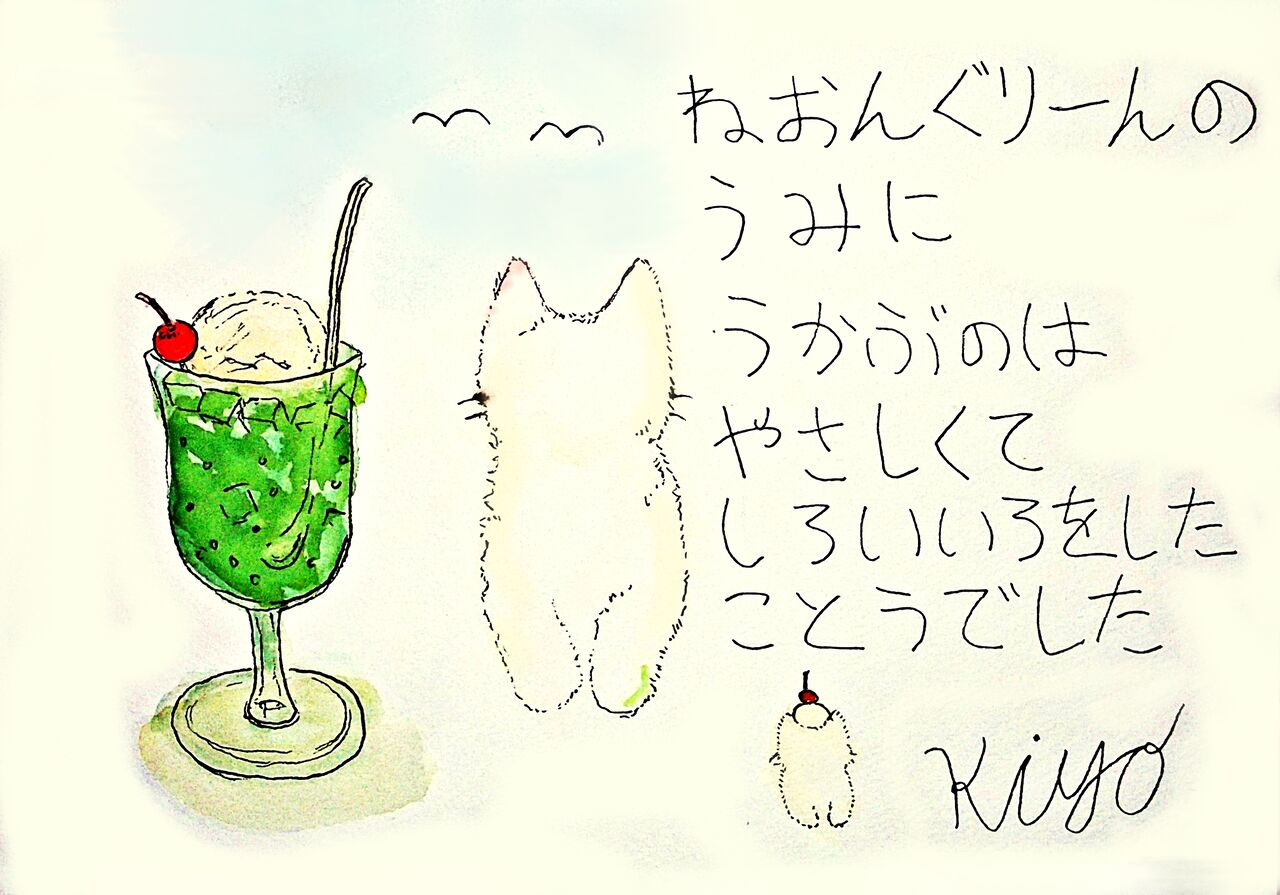 ねおんぐりーんの
うみに
うかぶのは
やさしくて
しろいいろをした
ことうでした
Kiyo